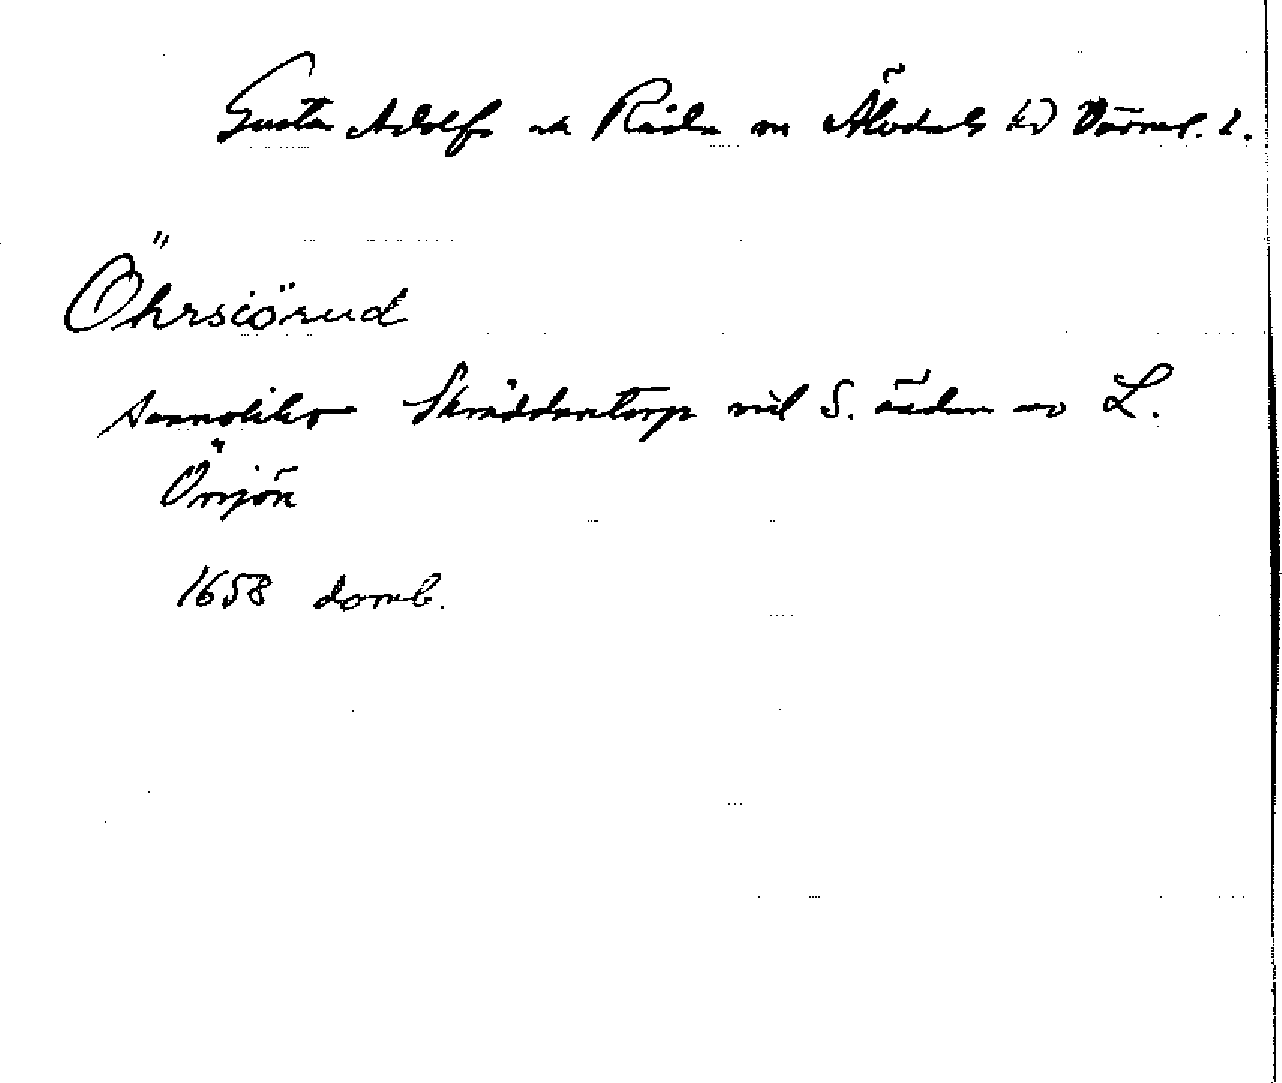 Gustav Adolfs och Råda sn Älvdals hd Värml. l.
Öhrsiörud
sannolikt Skräddartorp vid S. ändan av L.
Örsjön
1658 domb.